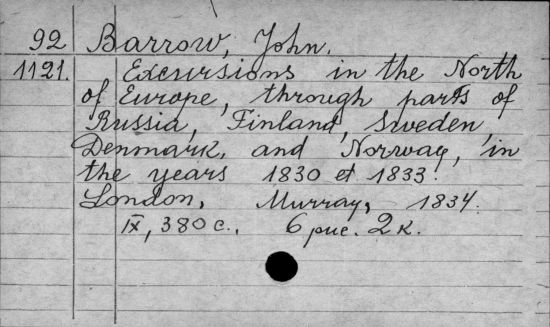 92 Barrow, John.
1121. Excursions in the North
of Europe, through parts of
Russia, Finland, Sweden,
Denmark, and Norway, in
the years 1830 et 1833.
London, Murray, 1834.
IX, 380 с., 6 рис. 2 к.